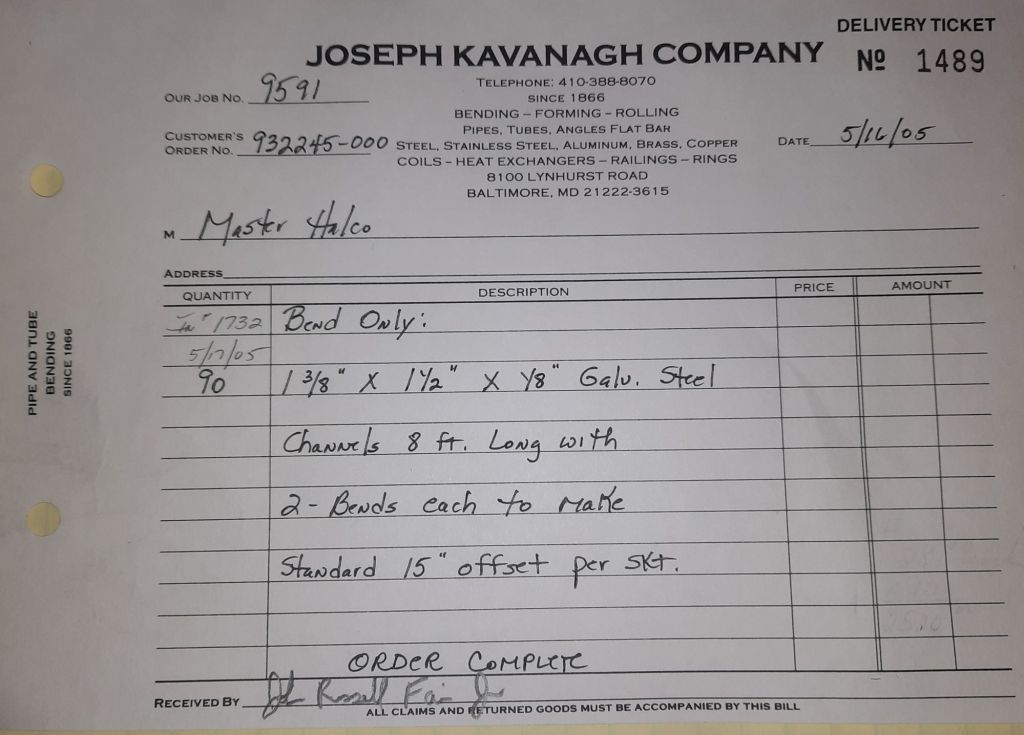 DELIVERY TICKET
JOSEPH KAVANAGH COMPANY
Nº 1489
TELEPHONE: 410-388-8070
SINCE 1866
BENDING – FORMING – ROLLING
PIPES, TUBES, ANGLES FLAT BAR
STEEL, STAINLESS STEEL, ALUMINUM, BRASS, COPPER
COILS – HEAT EXCHANGERS – RAILINGS – RINGS
8100 LYNHURST ROAD
BALTIMORE, MD 21222-3615
OUR JOB NO. 9591
CUSTOMER'S ORDER NO. 932245-000
DATE 5/16/05
M Master Halco
ADDRESS
QUANTITY DESCRIPTION PRICE AMOUNT
# 1732 Bend Only:
5/17/05
90 1 3/8" X 1 1/2" X 1/8" Galv. Steel
Channels 8 ft. Long with
2 - Bends each to Make
Standard 15" offset per SKt.
ORDER COMPLETE
RECEIVED BY John Russell
ALL CLAIMS AND RETURNED GOODS MUST BE ACCOMPANIED BY THIS BILL
PIPE AND TUBE
BENDING
SINCE 1866